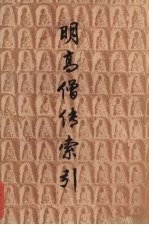 明高僧传索引